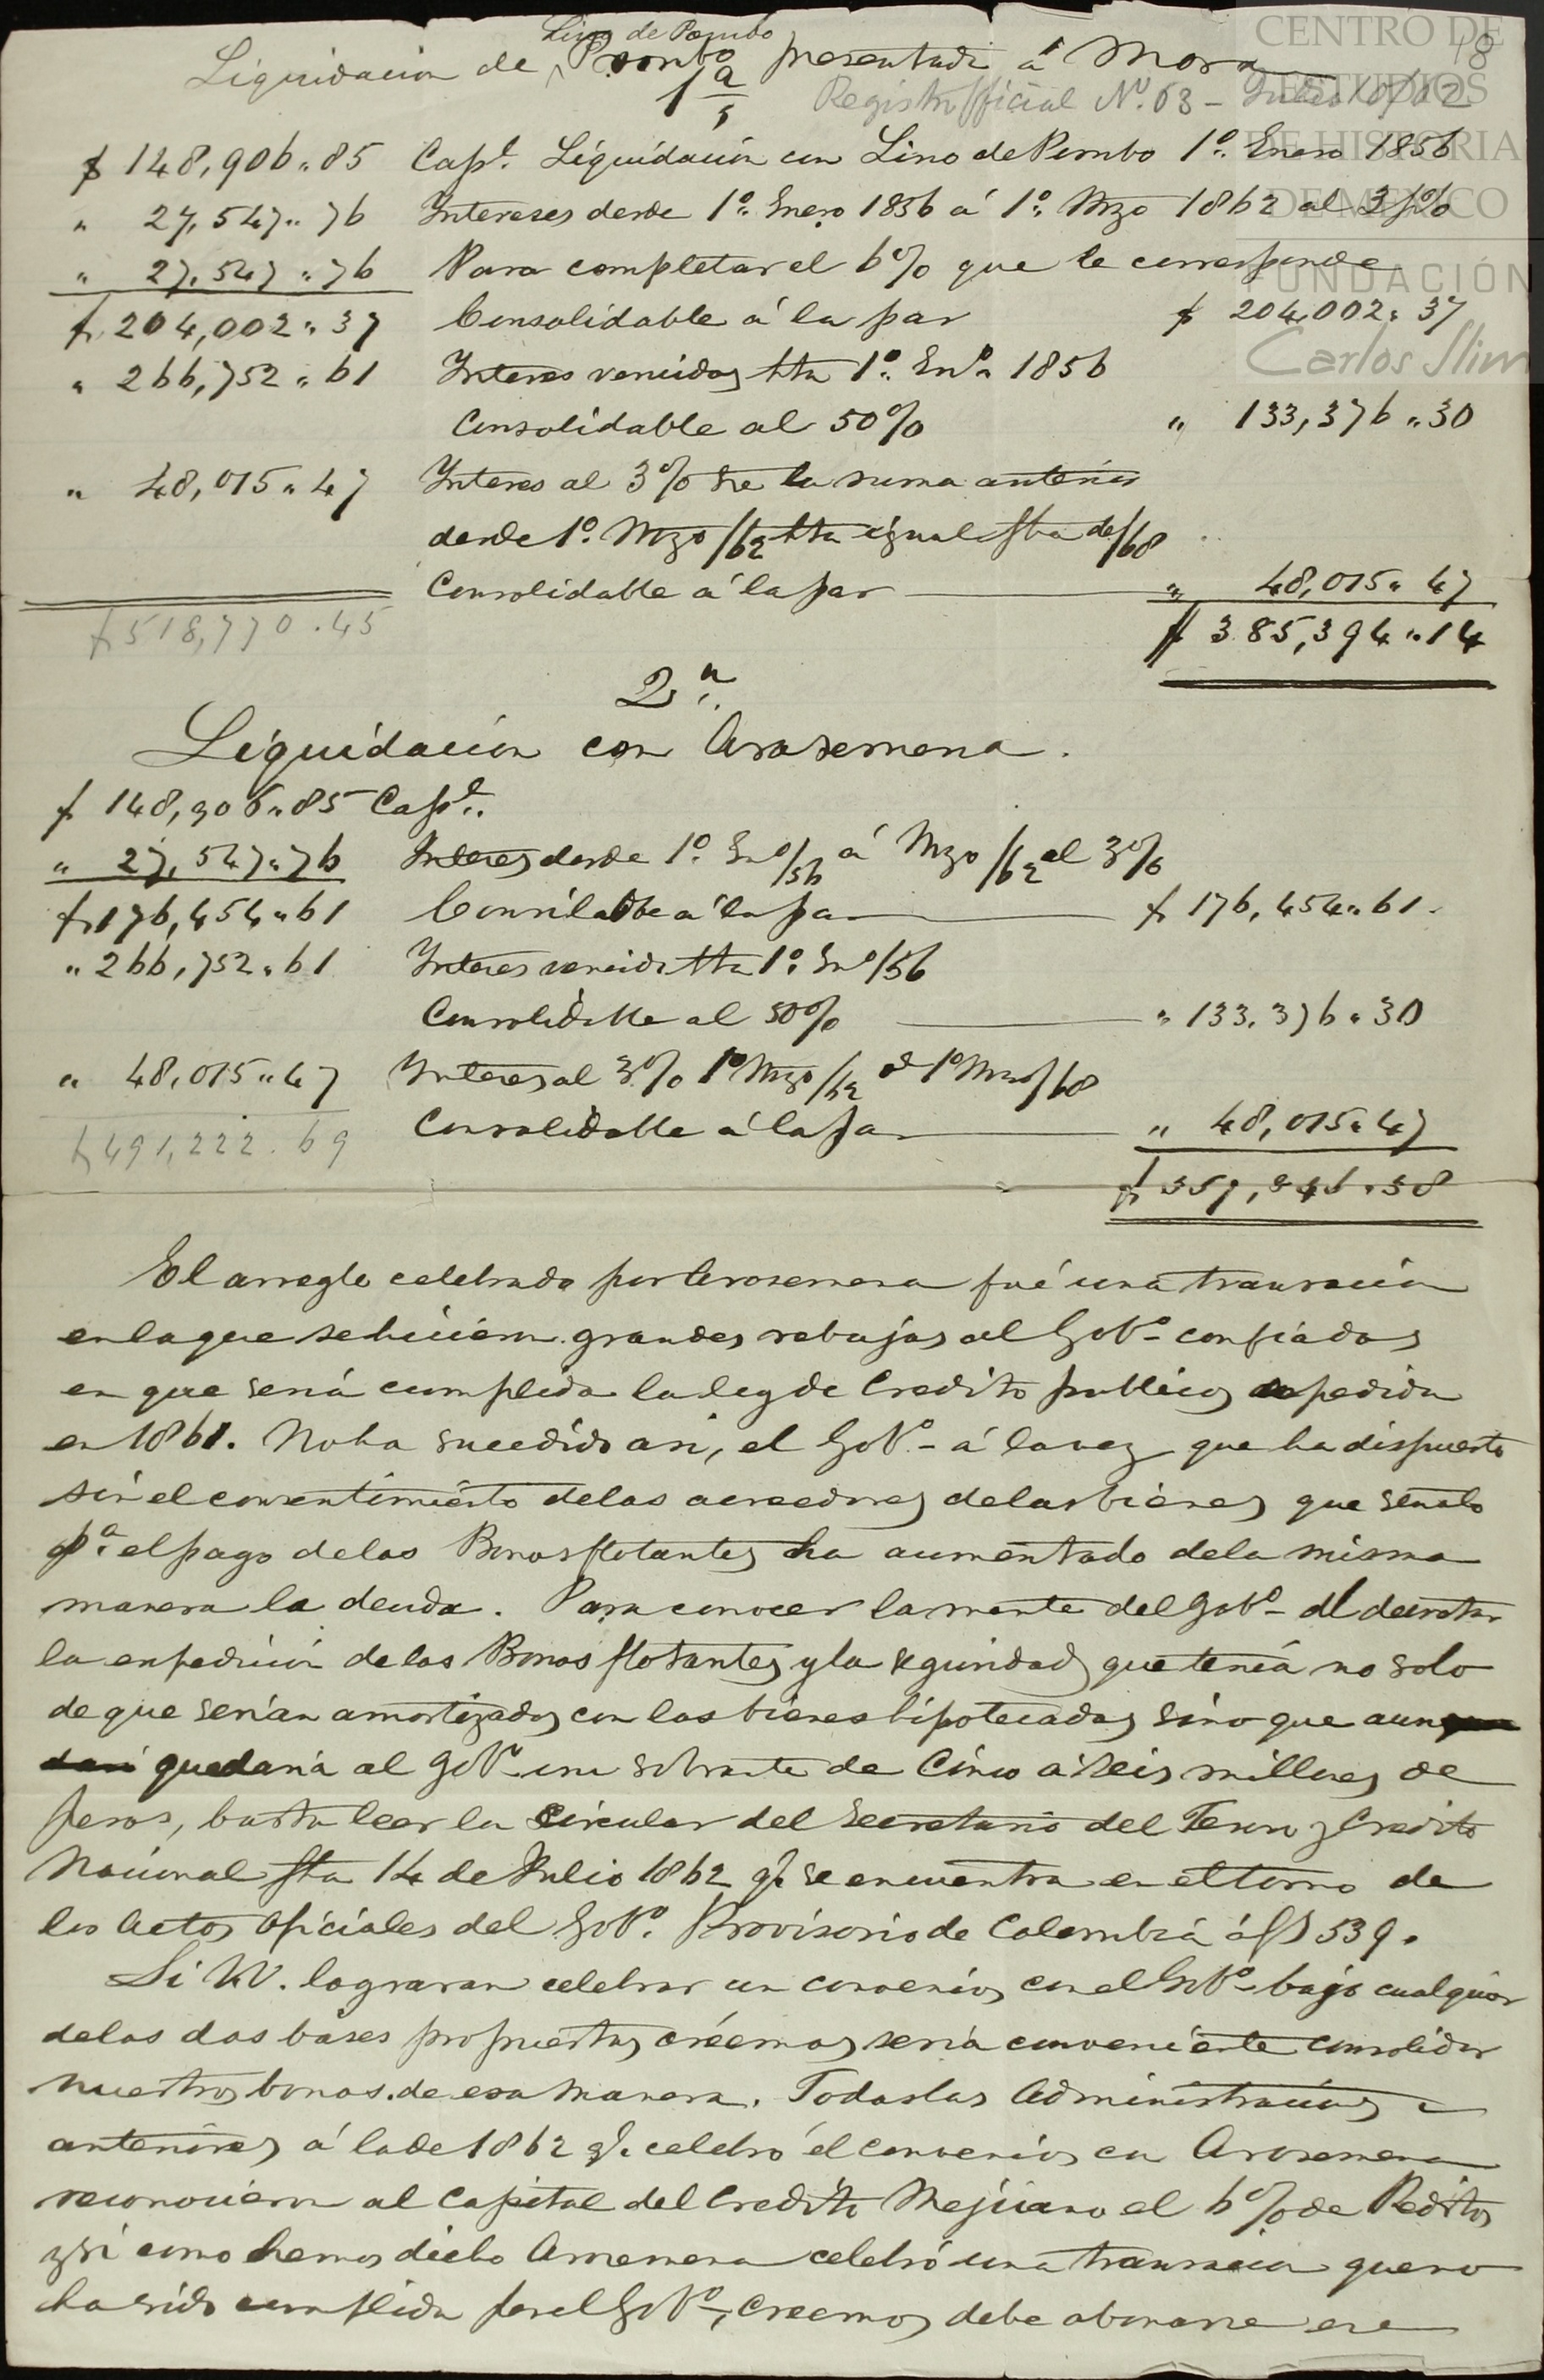 Lino de Pombo
Liquidacion de Pombo presentada á Mora
18
1ª
Registro Oficial Nº. 63 - Julio
CENTRO DE
ESTUDIOS
DE HISTORIA
DE MÉXICO
FUNDACIÓN
Carlos Slim
$ 148,906.,85 Capl. Liquidación con Lino de Pombo 1º. Enero 1856
" 27,547.,76 Intereses desde 1º. Enero 1856 á 1º. Mzo 1862 al 3 p%
" 27,547.,76 Para completar el 6% que le corresponde
$ 204,002.,37 Consolidable á la par $ 204,002.,37
" 266,752.,61 Interes vencidos hta 1º. Enº. 1856
Consolidable al 50% " 133,376.,30
" 48,015.,47 Interes al 3% sre la suma anterior
desde 1º. Mzo/62 hta igual fha de/68
Consolidable á la par " 48,015.,47
$ 518,770.45 $ 385,394.,14
2ª.
Liquidación con Arosemena.
$ 148,906.,85 Capl.
" 27,547.,76 Interes desde 1º. Enº/56 á Mzo/62 al 3%
$ 176,454.,61 Consilable á la par $ 176,454.,61.
" 266,752.,61 Interes vencido hta 1º. Enº/56
Consolidable al 50% " 133,376.,30
" 48,015.,47 Interes al 3% 1º Mzo/62 á 1º Mzo/68
$ 491,222.69 Consolidable á la par " 48,015.,47
$ 357,846.,38
El arreglo celebrado por Arosemena fué una transacion
en la que se hicieron grandes rebajas al Gobº- confiados
en que sería cumplida la ley de Credito publico, expedida
en 1861. No ha sucedido asi, el Gobº- á la vez que ha dispuesto
sin el consentimiento de los acreedores de los bienes que señalo
pª. el pago de los Bonos flotantes ha aumentado de la misma
manera la deuda. Para conocer la mente del Gobº- al decretar
la expedicion de los Bonos flotantes y la seguridad que tenía no solo
de que serían amortizados con los bienes hipotecados sino que aun
quedaría al Gobº- un sobrante de Cinco á seis millones de
pesos, basta leer la Circular del Secretario del Tesoro y Credito
Nacional fha 14 de Julio 1862 qe. se encuentra en el tomo de
los Actos Oficiales del Gobº. Provisorio de Colombia á fs 539.
Si W. lograran celebrar un convenio, con el Gobº- bajo cualquier
de las dos bases propuestas, creemos sería conveniente consolidar
nuestros bonos de esa manera. Todas las Administraciones
anteriores á la de 1862 qe. celebró el convenio con Arosemena
reconocieron al Capital del Credito Mejicano el 6% de Reditos
y si como hemos dicho Arosemena celebró una transacion que no
ha sido cumplida por el Gobº-, Creemos debe abonarse ese